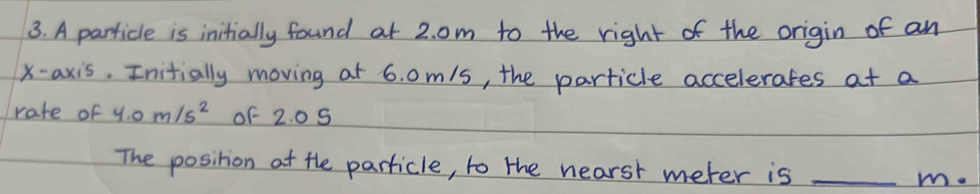 3. A particle is initially found at 2.0m to the right of the origin of an
x-axis. Initially moving at 6.0m/s, the particle accelerates at a
rate of 4.0 m/s² of 2.0 s
The position of the particle, to the nearst meter is ____ m.